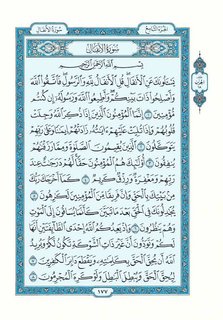 الجزء التاسع
سورة الأنفال
سُورَةُ الأَنفَالِ
بِسْمِ ٱللَّهِ ٱلرَّحْمَٰنِ ٱلرَّحِيمِ
يَسْـَٔلُونَكَ عَنِ ٱلْأَنفَالِ قُلِ ٱلْأَنفَالُ لِلَّهِ وَٱلرَّسُولِ فَٱتَّقُوا۟ ٱللَّهَ
وَأَصْلِحُوا۟ ذَاتَ بَيْنِكُمْ وَأَطِيعُوا۟ ٱللَّهَ وَرَسُولَهُۥٓ إِن كُنتُم
مُّؤْمِنِينَ ١ إِنَّمَا ٱلْمُؤْمِنُونَ ٱلَّذِينَ إِذَا ذُكِرَ ٱللَّهُ وَجِلَتْ
قُلُوبُهُمْ وَإِذَا تُلِيَتْ عَلَيْهِمْ ءَايَٰتُهُۥ زَادَتْهُمْ إِيمَٰنًا وَعَلَىٰ رَبِّهِمْ
يَتَوَكَّلُونَ ٢ ٱلَّذِينَ يُقِيمُونَ ٱلصَّلَوٰةَ وَمِمَّا رَزَقْنَٰهُمْ
يُنفِقُونَ ٣ أُو۟لَٰٓئِكَ هُمُ ٱلْمُؤْمِنُونَ حَقًّا لَّهُمْ دَرَجَٰتٌ عِندَ
رَبِّهِمْ وَمَغْفِرَةٌ وَرِزْقٌ كَرِيمٌ ٤ كَمَآ أَخْرَجَكَ رَبُّكَ
مِنۢ بَيْتِكَ بِٱلْحَقِّ وَإِنَّ فَرِيقًا مِّنَ ٱلْمُؤْمِنِينَ لَكَٰرِهُونَ ٥
يُجَٰدِلُونَكَ فِى ٱلْحَقِّ بَعْدَ مَا تَبَيَّنَ كَأَنَّمَا يُسَاقُونَ إِلَى ٱلْمَوْتِ
وَهُمْ يَنظُرُونَ ٦ وَإِذْ يَعِدُكُمُ ٱللَّهُ إِحْدَى ٱلطَّآئِفَتَيْنِ أَنَّهَا
لَكُمْ وَتَوَدُّونَ أَنَّ غَيْرَ ذَاتِ ٱلشَّوْكَةِ تَكُونُ لَكُمْ وَيُرِيدُ
ٱللَّهُ أَن يُحِقَّ ٱلْحَقَّ بِكَلِمَٰتِهِۦ وَيَقْطَعَ دَابِرَ ٱلْكَٰفِرِينَ ٧
لِيُحِقَّ ٱلْحَقَّ وَيُبْطِلَ ٱلْبَٰطِلَ وَلَوْ كَرِهَ ٱلْمُجْرِمُونَ ٨
١٧٧